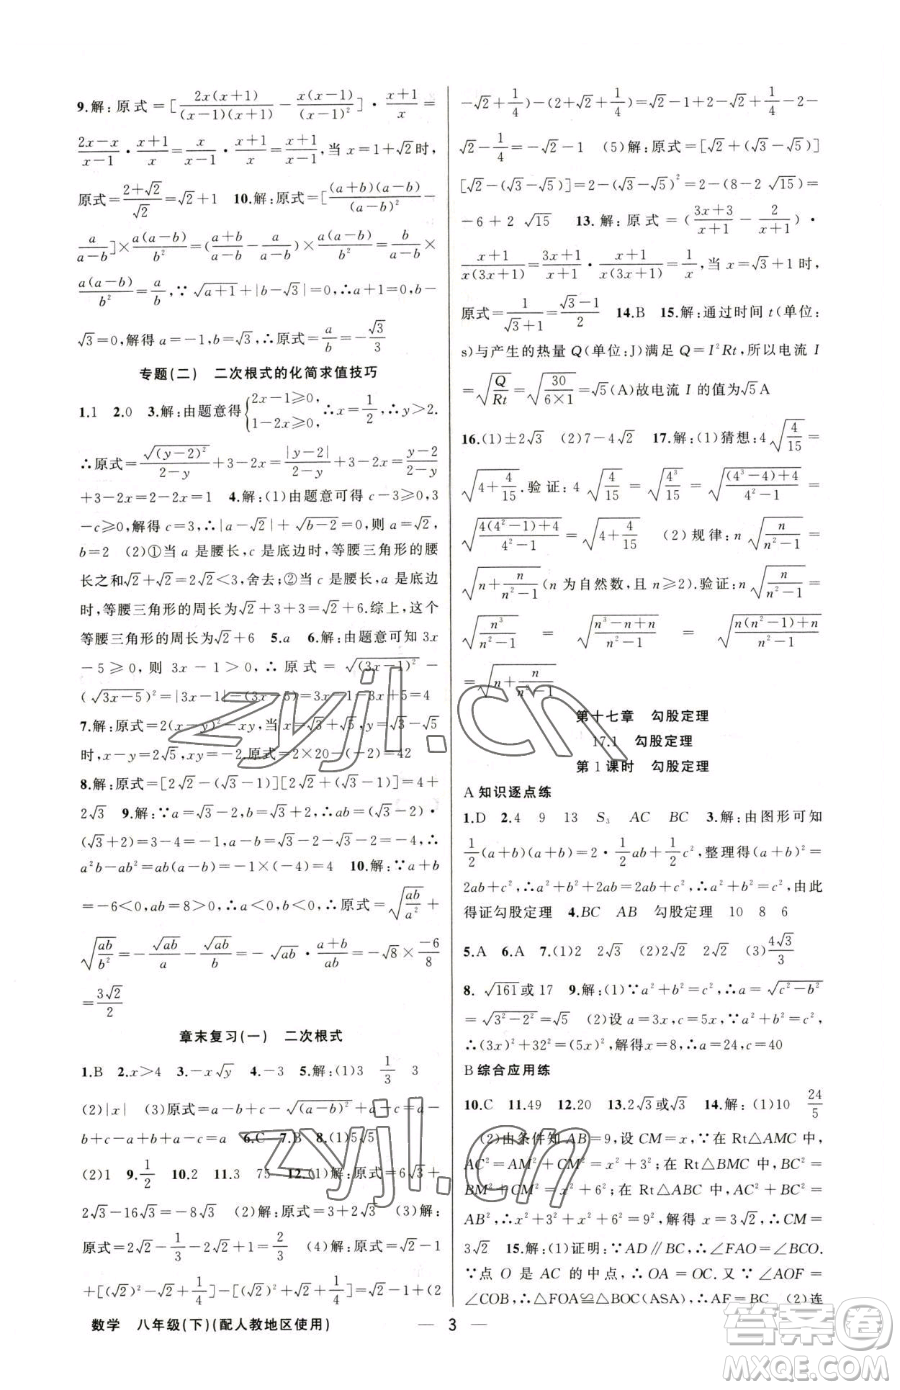 9.解:原式=[2x(x+1)/((x-1)(x+1)) - x(x-1)/(x-1)²]·(x+1)/x=
(2x-x)/(x-1)·(x+1)/x=x/(x-1)·(x+1)/x=(x+1)/(x-1),当x=1+√2时,
原式=(2+√2)/√2=√2+1 10.解:原式=[(a+b)(a-b)/(a-b)²-
a/(a-b)]×a(a-b)/b²=((a+b)/(a-b)-a/(a-b))×a(a-b)/b²=b/(a-b)×
a(a-b)/b²=a/b,∵√(a+1)+|b-√3|=0,∴a+1=0,b-
√3=0,解得a=-1,b=√3,∴原式=a/b=-√3/3
专题(二) 二次根式的化简求值技巧
1.1 2.0 3.解:由题意得{2x-1≥0, 1-2x≥0,∴x=1/2,∴y>2.
∴原式=√(y-2)²/(2-y)+3-2x=|y-2|/(2-y)+3-2x=(y-2)/(2-y)
+3-2x=2-2x=1 4.解:(1)由题意可得c-3≥0,3
-c≥0,解得c=3,∴|a-√2|+√(b-2)=0,则a=√2,
b=2 (2)①当a是腰长,c是底边时,等腰三角形的腰
长之和√2+√2=2√2<3,舍去;②当c是腰长,a是底边
时,等腰三角形的周长为√2+3+3=√2+6.综上,这个
等腰三角形的周长为√2+6 5.a 6.解:由题意可知3x
-5≥0,则3x-1>0,∴原式=√(3x-1)²-
(√(3x-5))²=|3x-1|-(3x-5)=3x-1-3x+5=4
7.解:原式=2(x-y)²-xy,当x=√3+√5,y=√3-√5
时,x-y=2√5,xy=-2,原式=2×20-(-2)=42
8.解:原式=[2√3-(√3-1)][2√3-√3+1]=4+
2√3 9.解:∵a=√3-2,b=√3+2,∴ab=(√3-2)
(√3+2)=3-4=-1,a-b=√3-2-√3-2=-4,∴
a²b-ab²=ab(a-b)=-1×(-4)=4 10.解:∵a+b
=-6<0,ab=8>0,∴a<0,b<0,∴原式=√(ab/a²)+
√(ab/b²)=-√ab/a-√ab/b=-√ab·(a+b)/ab=-√8×(-6)/8
=3√2/2
章末复习(一) 二次根式
1.B 2.x>4 3.-x√y 4.>0 5.解:(1)3 1/3 3
(2)|x| (3)原式=a-b+c-√(a-b)²+|b-c|=
a-b+c+a-b-b+c 6.C 7.B 8.(1)5√5
(2)1 9.1/2 10.2 11.3 75 12.(1)解:原式=6√3+
2√3-16√3=-8√3 (2)解:原式=2 (3)解:
原式=2√2-2/3-√2=√2-2/3 (4)解:原式=√2-1
+[(√2)²-√2+1/4]-[(√2)²+√2+1/4]=√2-1+(2
-√2+1/4)-(2+√2+1/4)=√2-1+2-√2+1/4-2-
√2-1/4=-√2-1 (5)解:原式=[√2+(√3-√5)]
[√2-(√3-√5)]=2-(√3-√5)²=2-(8-2√15)=
-6+2√15 13.解:原式=((3x+3)/(x+1)-2/(x+1))·
(x+1)/(x(3x+1))=(3x+1)/(x+1)·(x+1)/(x(3x+1))=1/x,当x=√3+1时,
原式=1/(√3+1)=(√3-1)/2 14.B 15.解:通过时间t(单位:
s)与产生的热量Q(单位:J)满足Q=I²Rt,所以电流I
=√(Q/Rt)=√(30/(6×1))=√5(A)故电流I的值为√5A
16.(1)±2√3 (2)7-4√2 17.解:(1)猜想:4√(4/15)=
√(4+4/15).验证:4√(4/15)=√(4³/15)=√(((4³-4)+4)/(4²-1))=
√((4(4²-1)+4)/(4²-1))=√(4+4/15) (2)规律:n√(n/(n²-1))=
√(n+n/(n²-1))(n为自然数,n≥2).验证:n√(n/(n²-1))=
√(n³/(n²-1))=√((n³-n+n)/(n²-1))=√((n(n²-1)+n)/(n²-1))=
√(n+n/(n²-1))
第十七章 勾股定理
17.1 勾股定理
第1课时 勾股定理
A 知识逐点练
1.D 2.4 9 13 S₃ AC BC 3.解:由图形可知
1/2(a+b)(a+b)=2·1/2ab+1/2c²,整理得(a+b)²=
2ab+c²,∴a²+b²+2ab=2ab+c²,∴a²+b²=c²,由此
得证勾股定理 4.BC AB 勾股定理 10 8 6
5.A 6.A 7.(1)2 2√3 (2)2√2 2√2 (3)4√3/3
8.√161或17 9.解:(1)∵a²+b²=c²,∴a=√(c²-b²)
=√(3²-2²)=√5 (2)设a=3x,c=5x,∵a²+b²=c²,
∴(3x)²+32²=(5x)²,解得x=8,∴a=24,c=40
B 综合应用练
10.C 11.49 12.20 13.2√3或√3 14.解:(1)10 24/5
(2)由条件知AB=9,设CM=x,∵在Rt△AMC中,
AC²=AM²+CM²=x²+3²;在Rt△BMC中,
BC²=BM²+CM²=x²+6²;在Rt△ABC中,AC²+BC²=
AB²,∴x²+3²+x²+6²=9²,解得x=3√2,∴CM=
3√2 15.解:(1)证明:∵AD∥BC,∴∠FAO=∠BCO.
∵点O是AC的中点,∴OA=OC.又∵∠AOF=
∠COB,∴△OAF≌△OCB(ASA),∴AF=BC (2)连
数学 八年级(下)(配人教地区使用) — 3 —
zyjl.cn
zyjl.cn
作业精灵
MXQE.COM